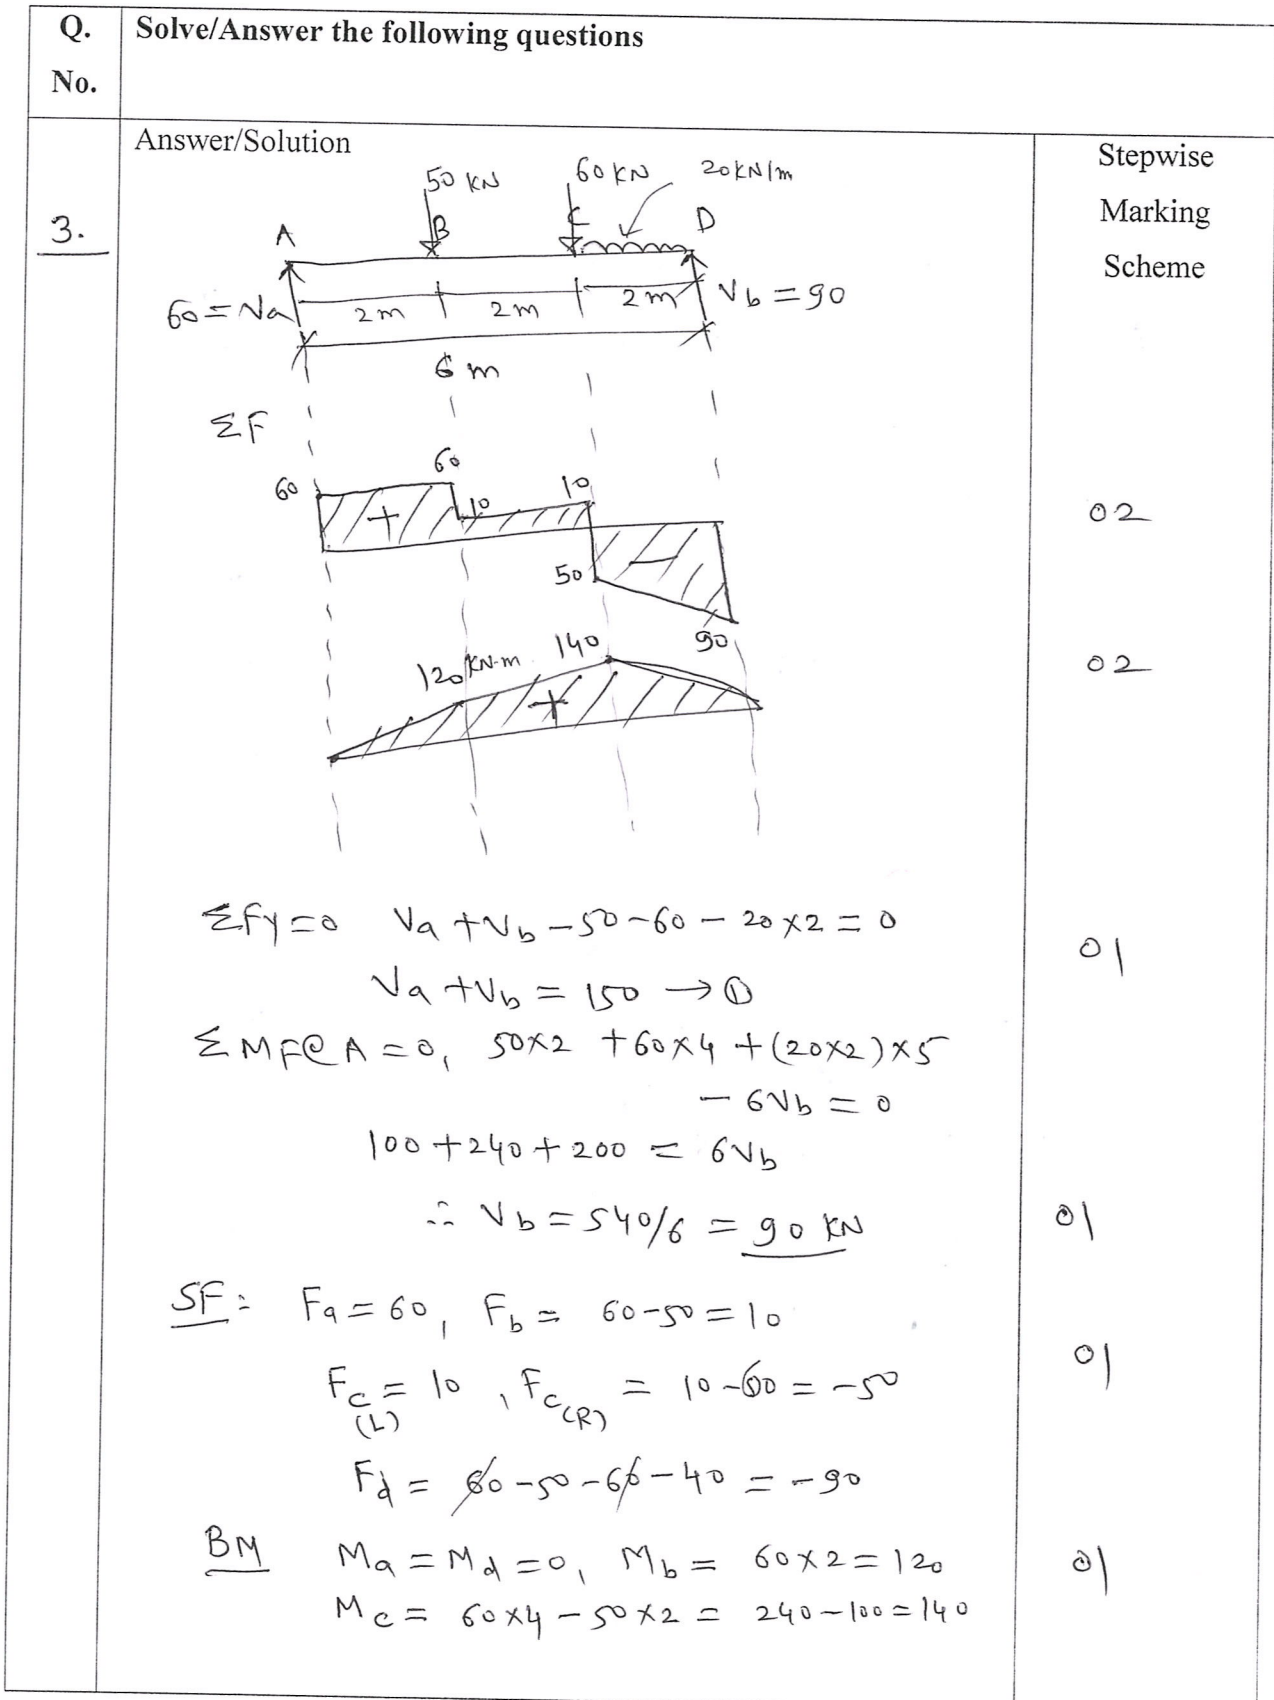 Q. Solve/Answer the following questions
No.
Answer/Solution
Stepwise
Marking
Scheme
3.
50 KN 60 KN 20KN/m
A B C D
60 = Va 2m 2m 2m Vb = 90
6 m
ΣF
60 60 10 10
02
50
90
120 KN-m 140
02
+
-
+
ΣFy=0 Va + Vb - 50 - 60 - 20 × 2 = 0
01
Va + Vb = 150 → ①
ΣMF@A = 0, 50×2 + 60×4 + (20×2)×5
- 6Vb = 0
100 + 240 + 200 = 6Vb
∴ Vb = 540/6 = 90 KN
01
SF: Fa = 60, Fb = 60-50 = 10
Fc(L) = 10, Fc(R) = 10-60 = -50
01
Fd = 60 - 50 - 60 - 40 = -90
BM Ma = Md = 0, Mb = 60×2 = 120
01
Mc = 60×4 - 50×2 = 240 - 100 = 140